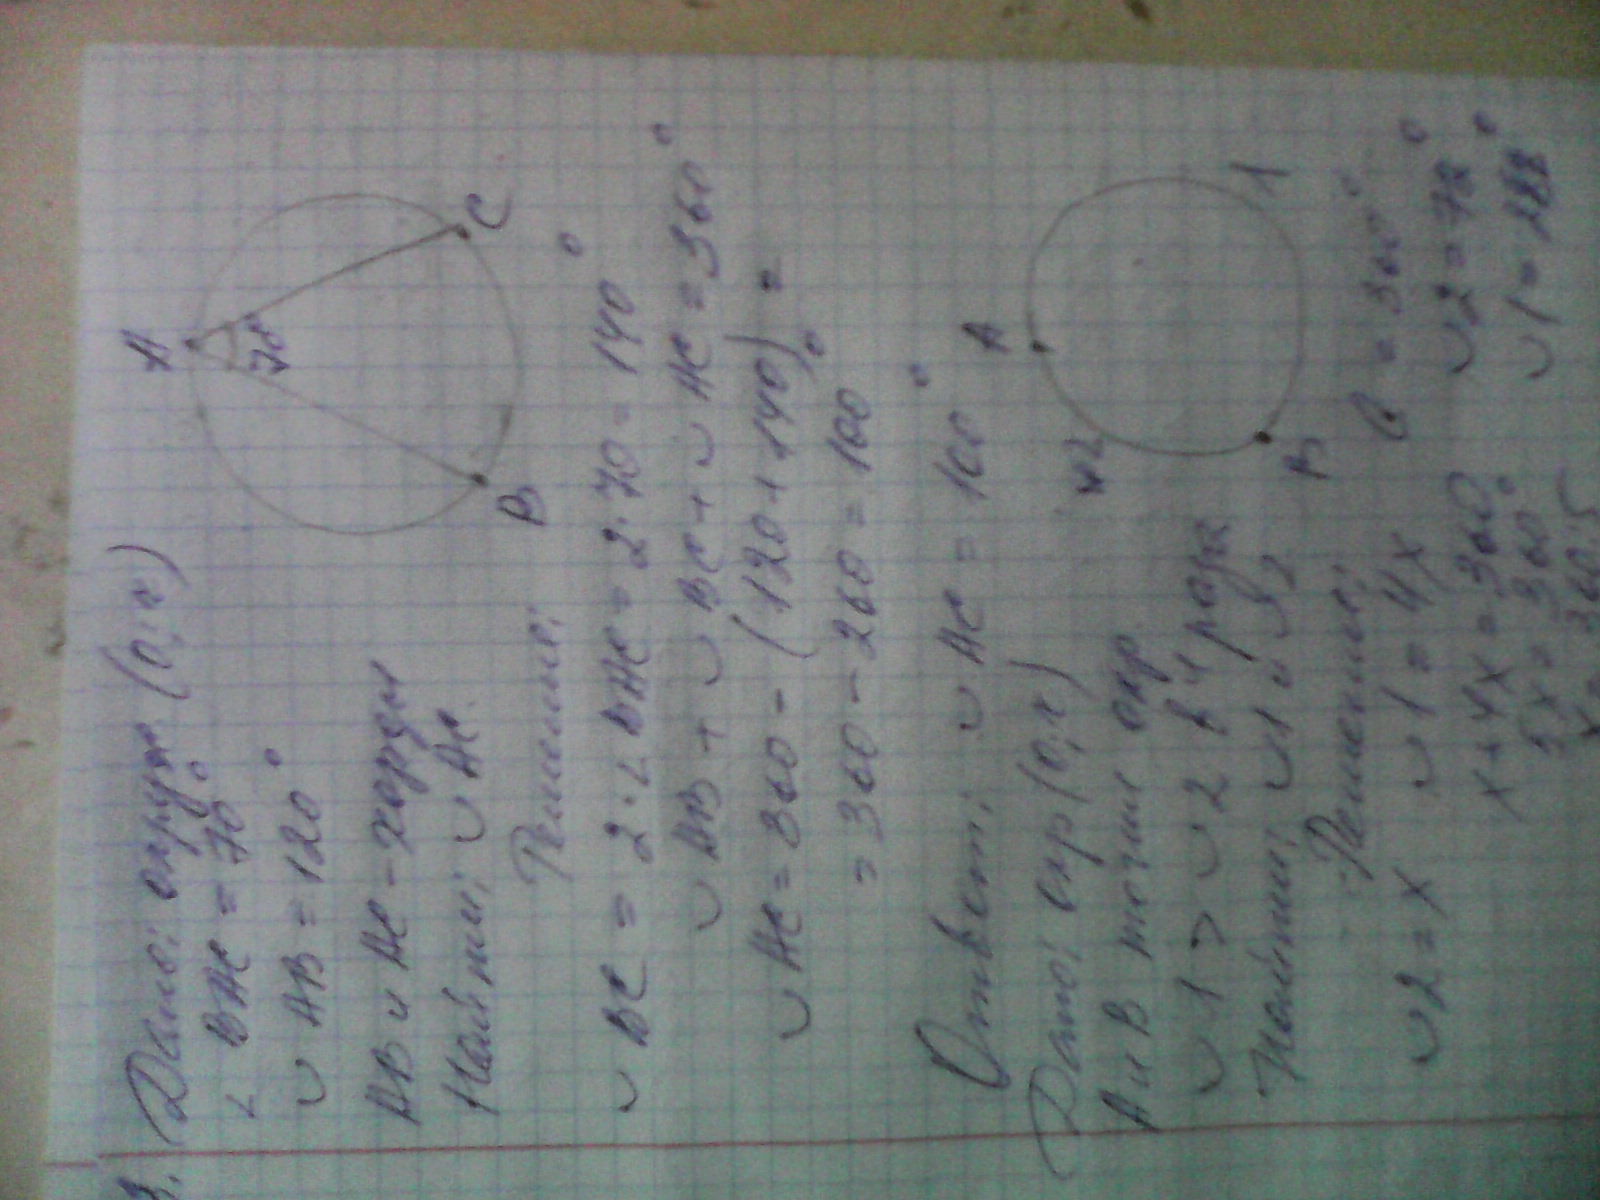 3. Дано: окруж (О; r)
∠ BAC = 70°
◡ AB = 120°
AB и AC - хорды
Найти: ◡ AC.
A
70
B
C
Решение:
◡ BC = 2 · ∠ BAC = 2 · 70 = 140°
◡ AB + ◡ BC + ◡ AC = 360°
◡ AC = 360 - (120 + 140) =
= 360 - 260 = 100°
Ответ: ◡ AC = 100°
Дано: окр (О; r)
A и B точки окр.
◡ 1 > ◡ 2 в 4 раза
Найти: ◡ 1 и ◡ 2
A
B
1
Решение:
◡ 2 = x ◡ 1 = 4x
x + 4x = 360°
5x = 360°
x = 360:5
= 360°
◡ 2 = 72°
◡ 1 = 288°